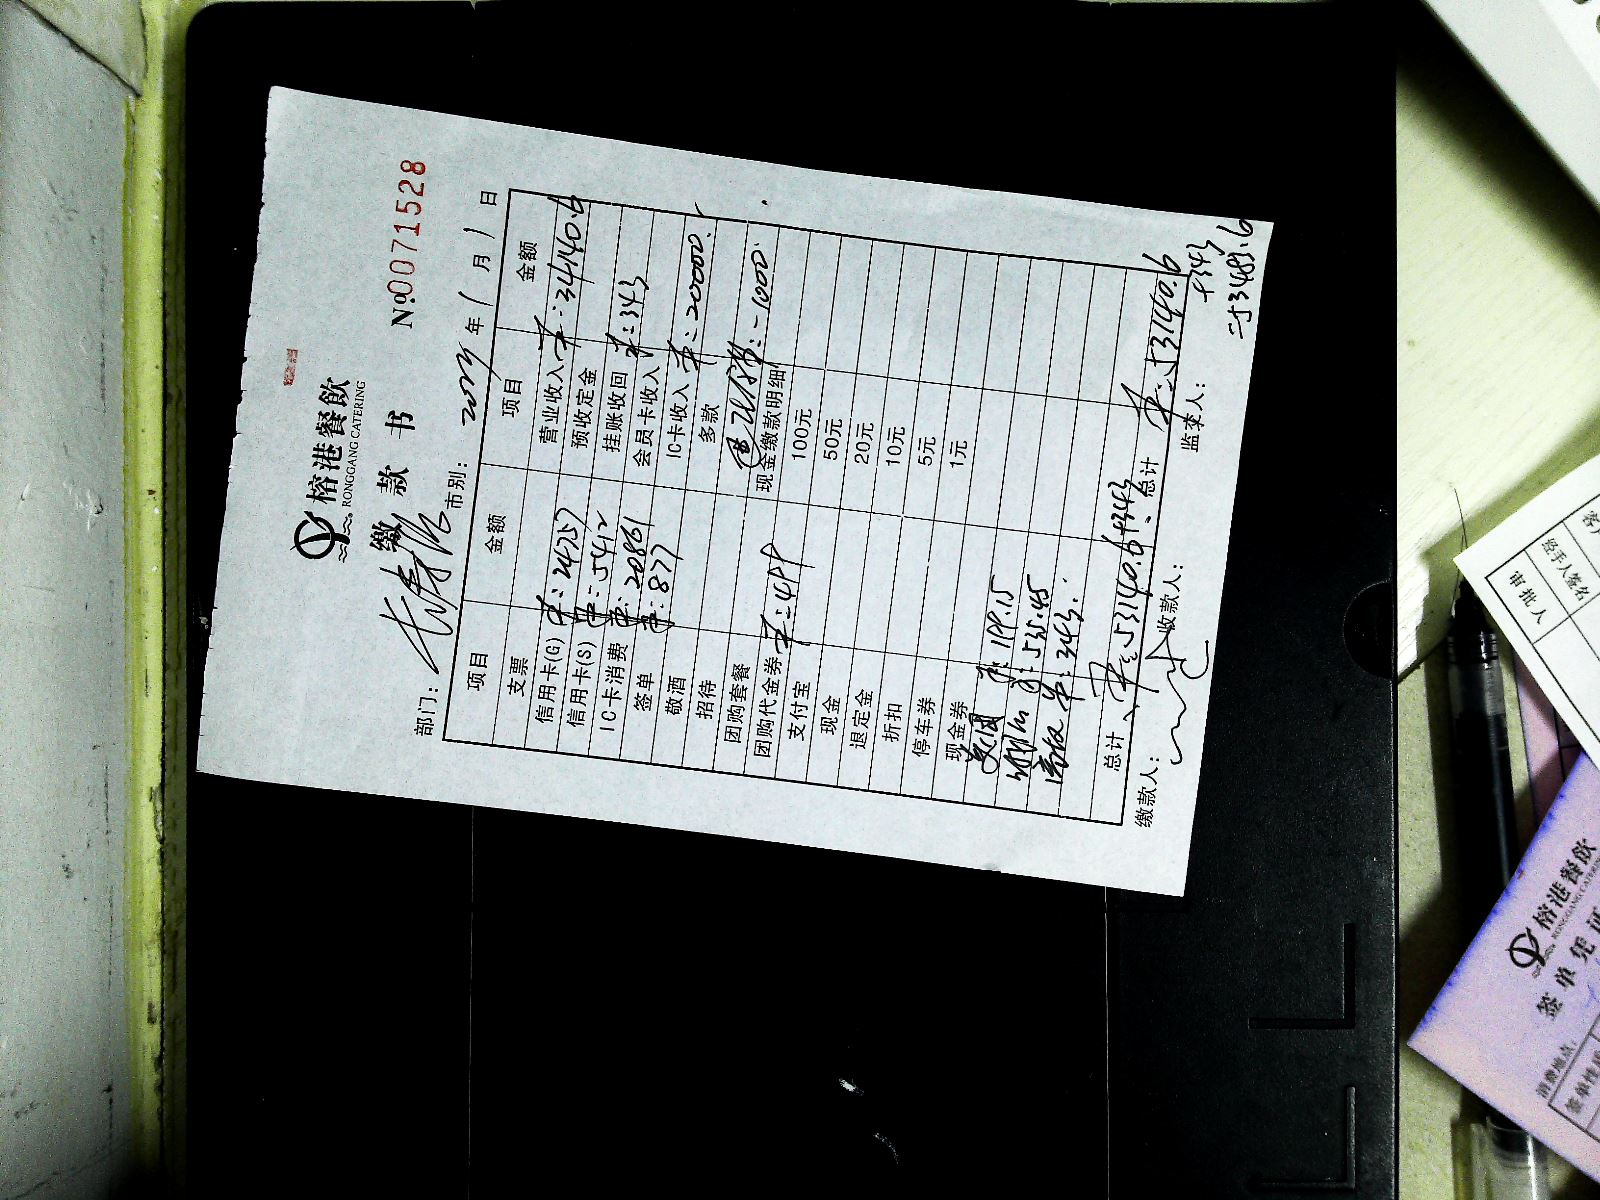 榕港餐飲
RONGGANG CATERING
缴 款 书
№0071528
部门：
市别：
年 1 月 1 日
项目 金额 项目 金额
支票 营业收入 ¥:34140.6
信用卡(G) ¥:24757 预收定金
信用卡(S) ¥:5412 挂账收回 ¥:343
IC卡消费 ¥:20861 会员卡收入
签单 ¥:877 IC卡收入 ¥:20000.
敬酒 多款
招待
团购套餐 现金缴款明细 :-1000.
团购代金券 100元
支付宝 ¥:499 50元
现金 20元
退定金 10元
折扣 5元
停车券 1元
现金券
美团 ¥:199.15
¥:535.45
¥:343.
总计 ¥:53140.6+343 总计 ¥:53140.6
缴款人： 收款人： 监查人：
+343
53483.6
审批人
经手人签名
客户
榕港餐飲
RONGGANG CATERING
签 单 凭 证
消费地点：